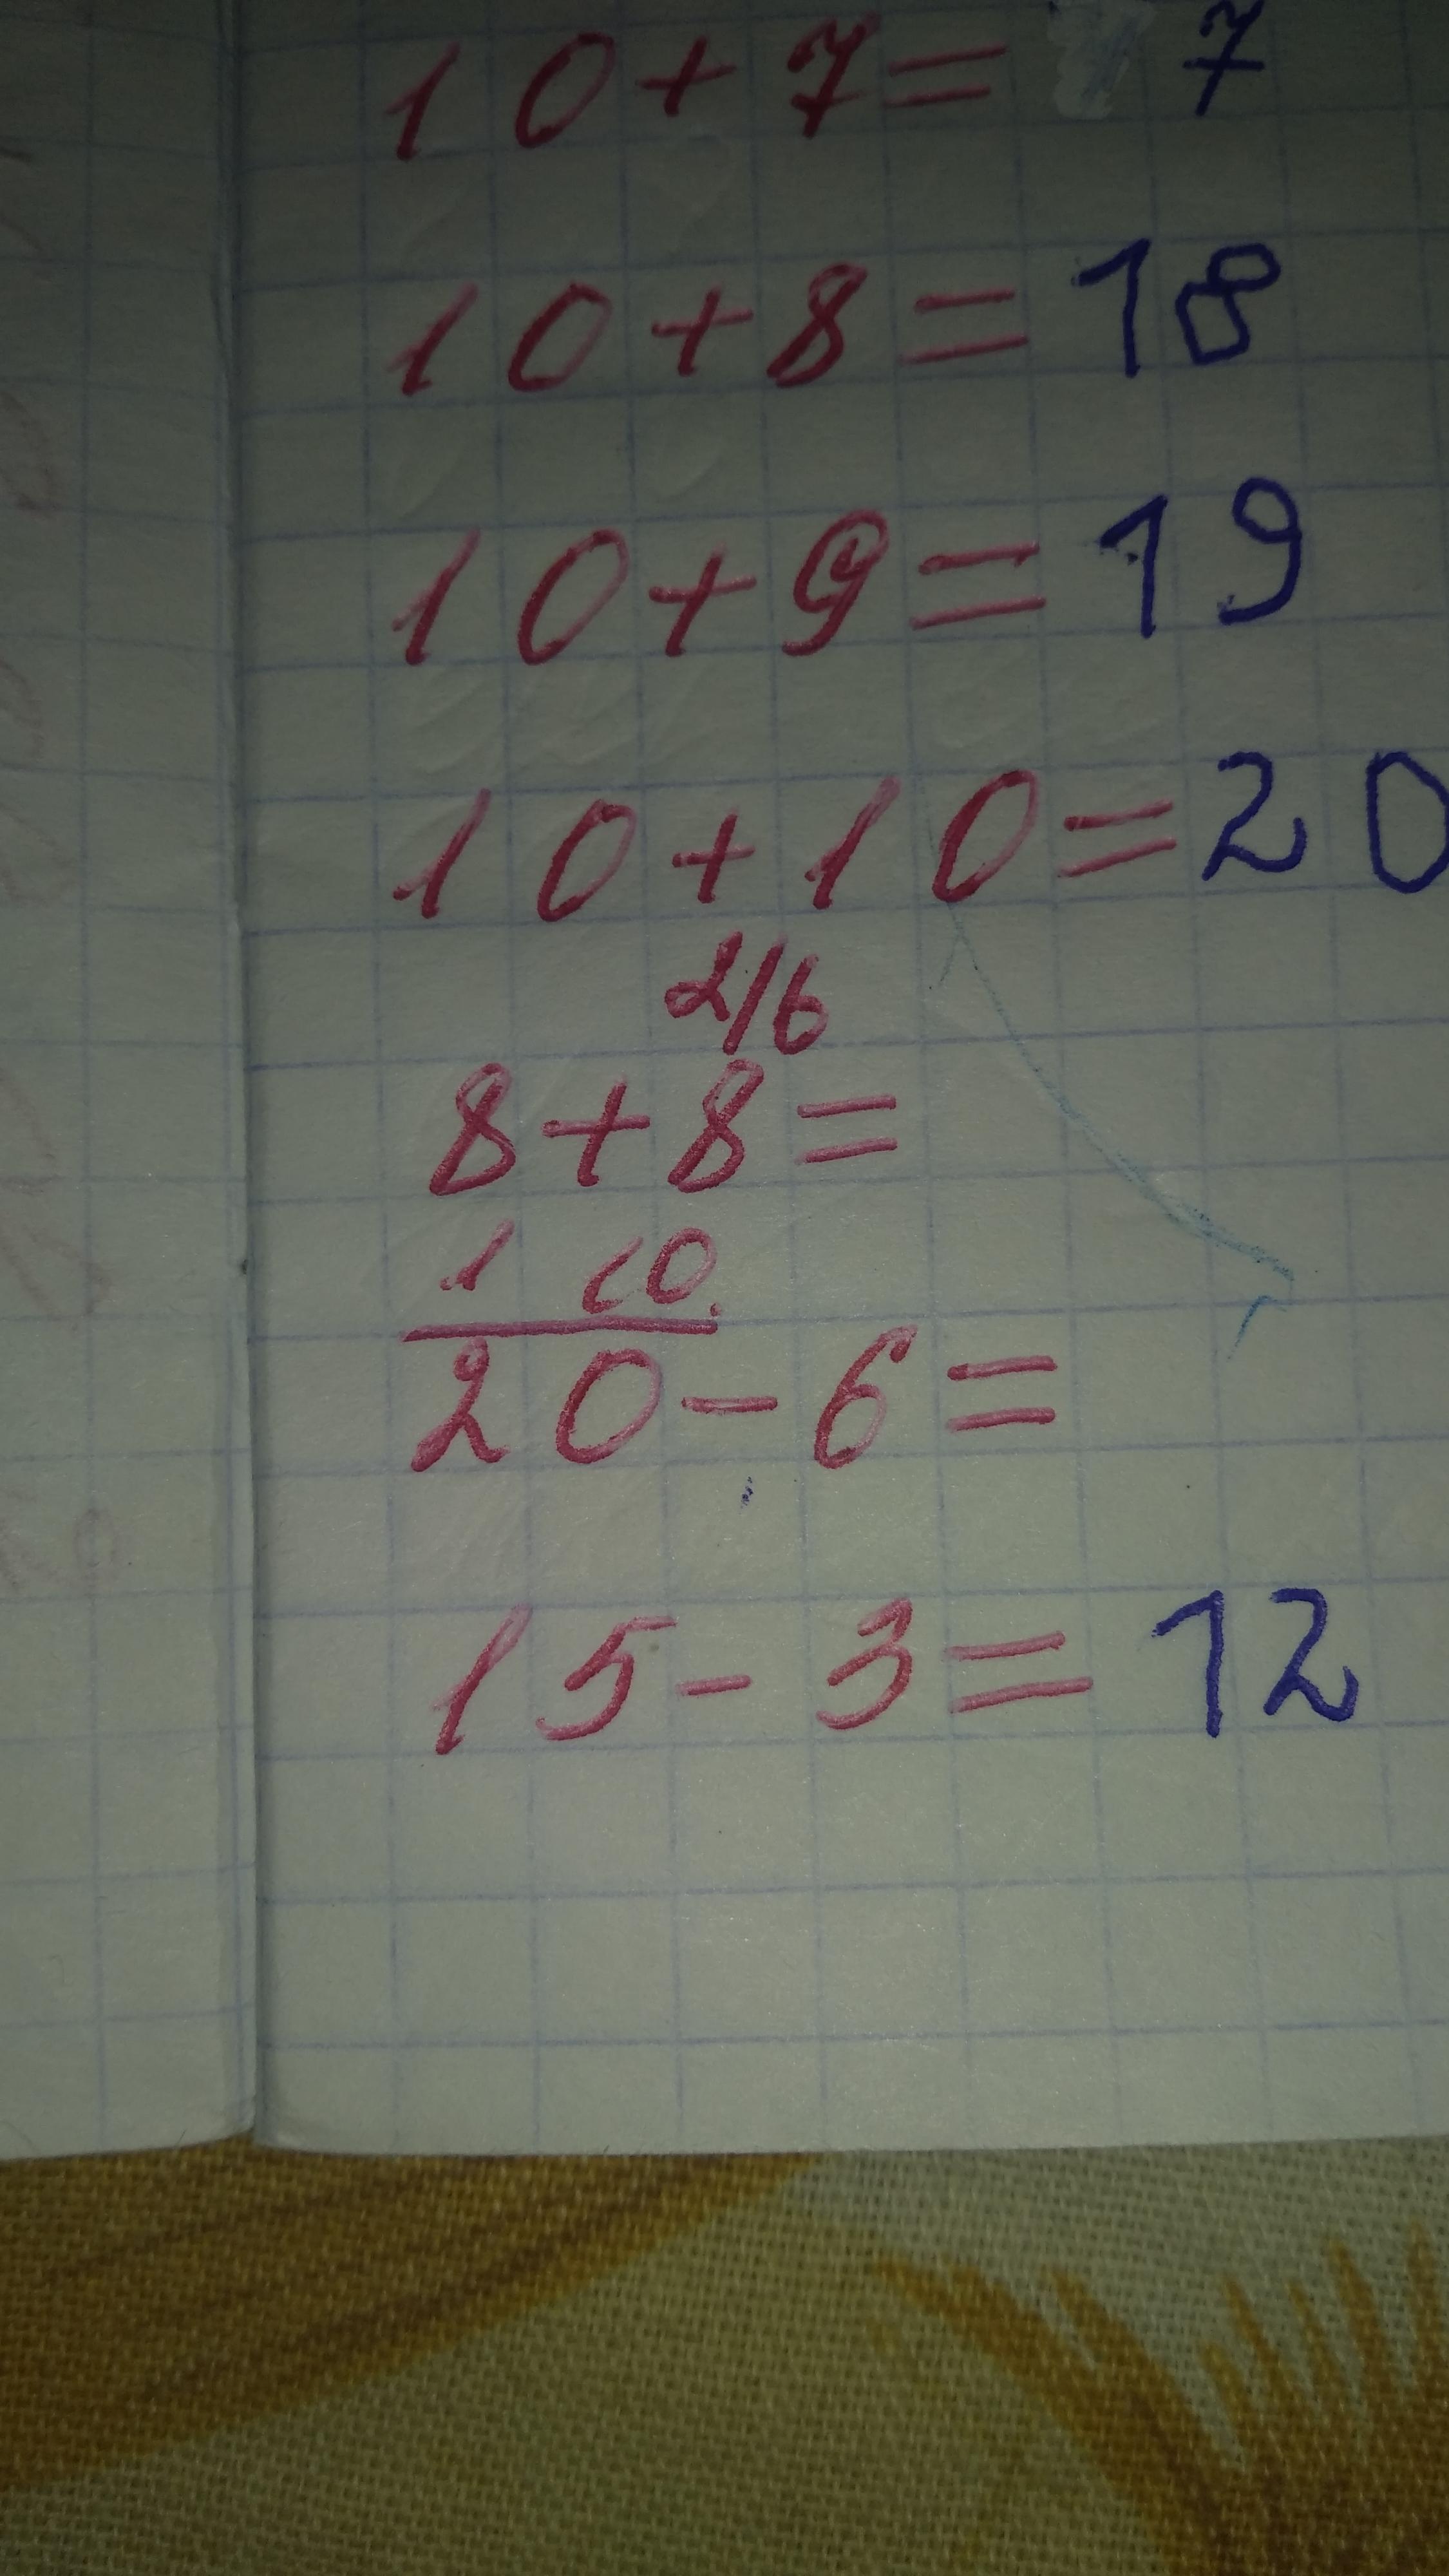 10+7= 7
10+8=18
10+9=19
10+10=20
2/6
8+8=
1 10
20-6=
15-3=12